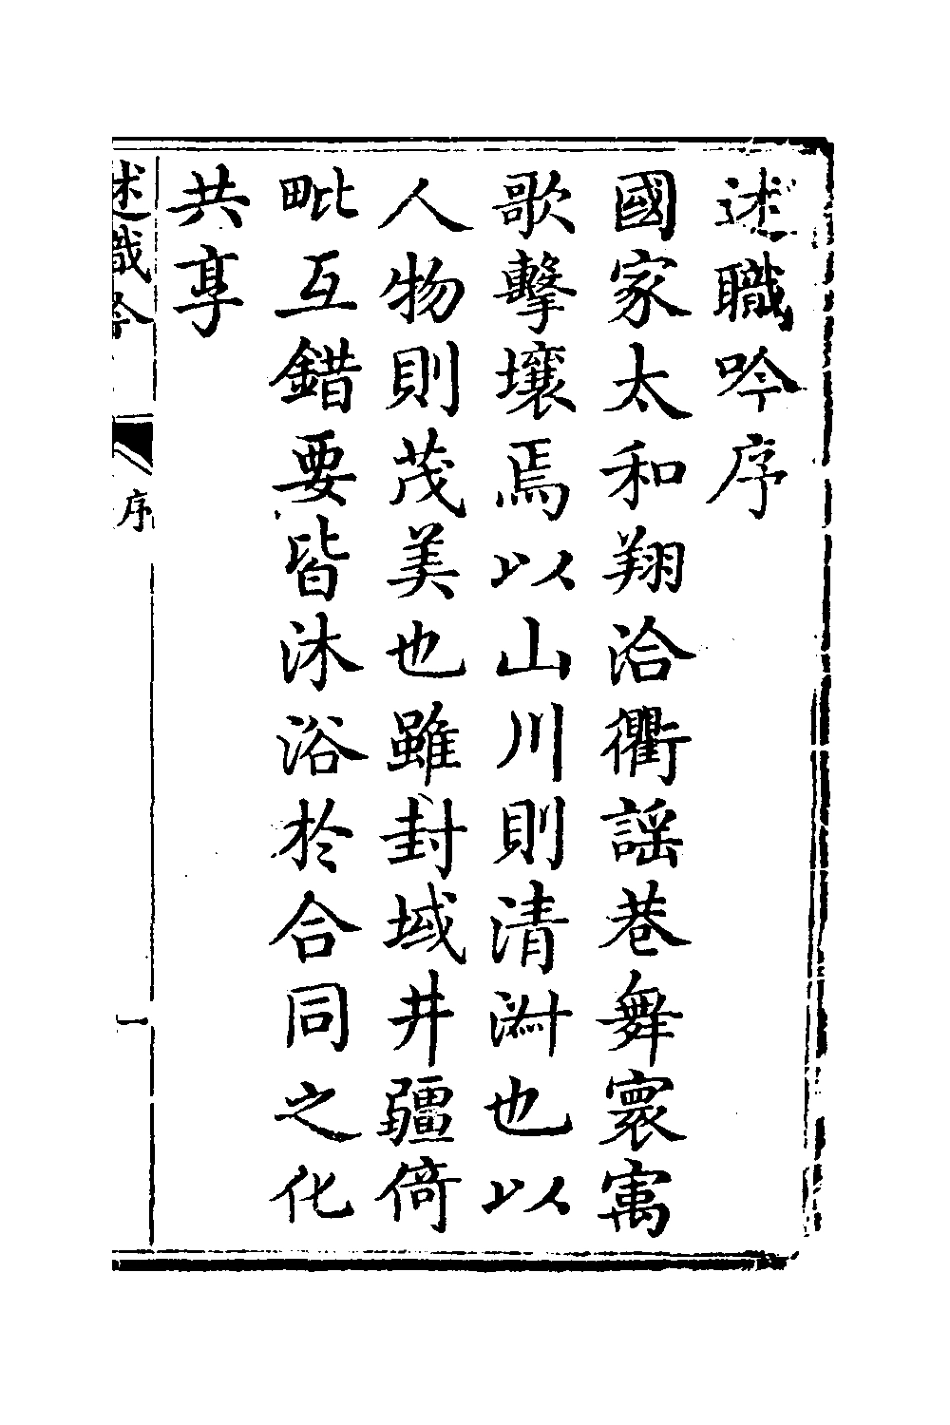 述職吟序
國家太和翔洽衢謡巷舞寰㝢
歌擊壤焉以山川則清淵也以
人物則茂美也雖封域井疆倚
毗互錯要皆沐浴於合同之化
共享
述職吟
序
一